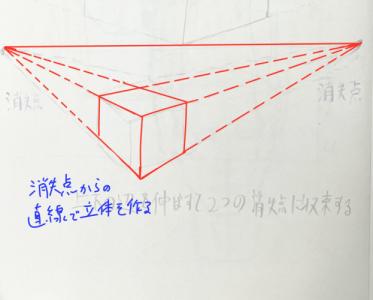 消失点
消失点
消失点からの
直線で立体を作る
2つの消失点に収束する